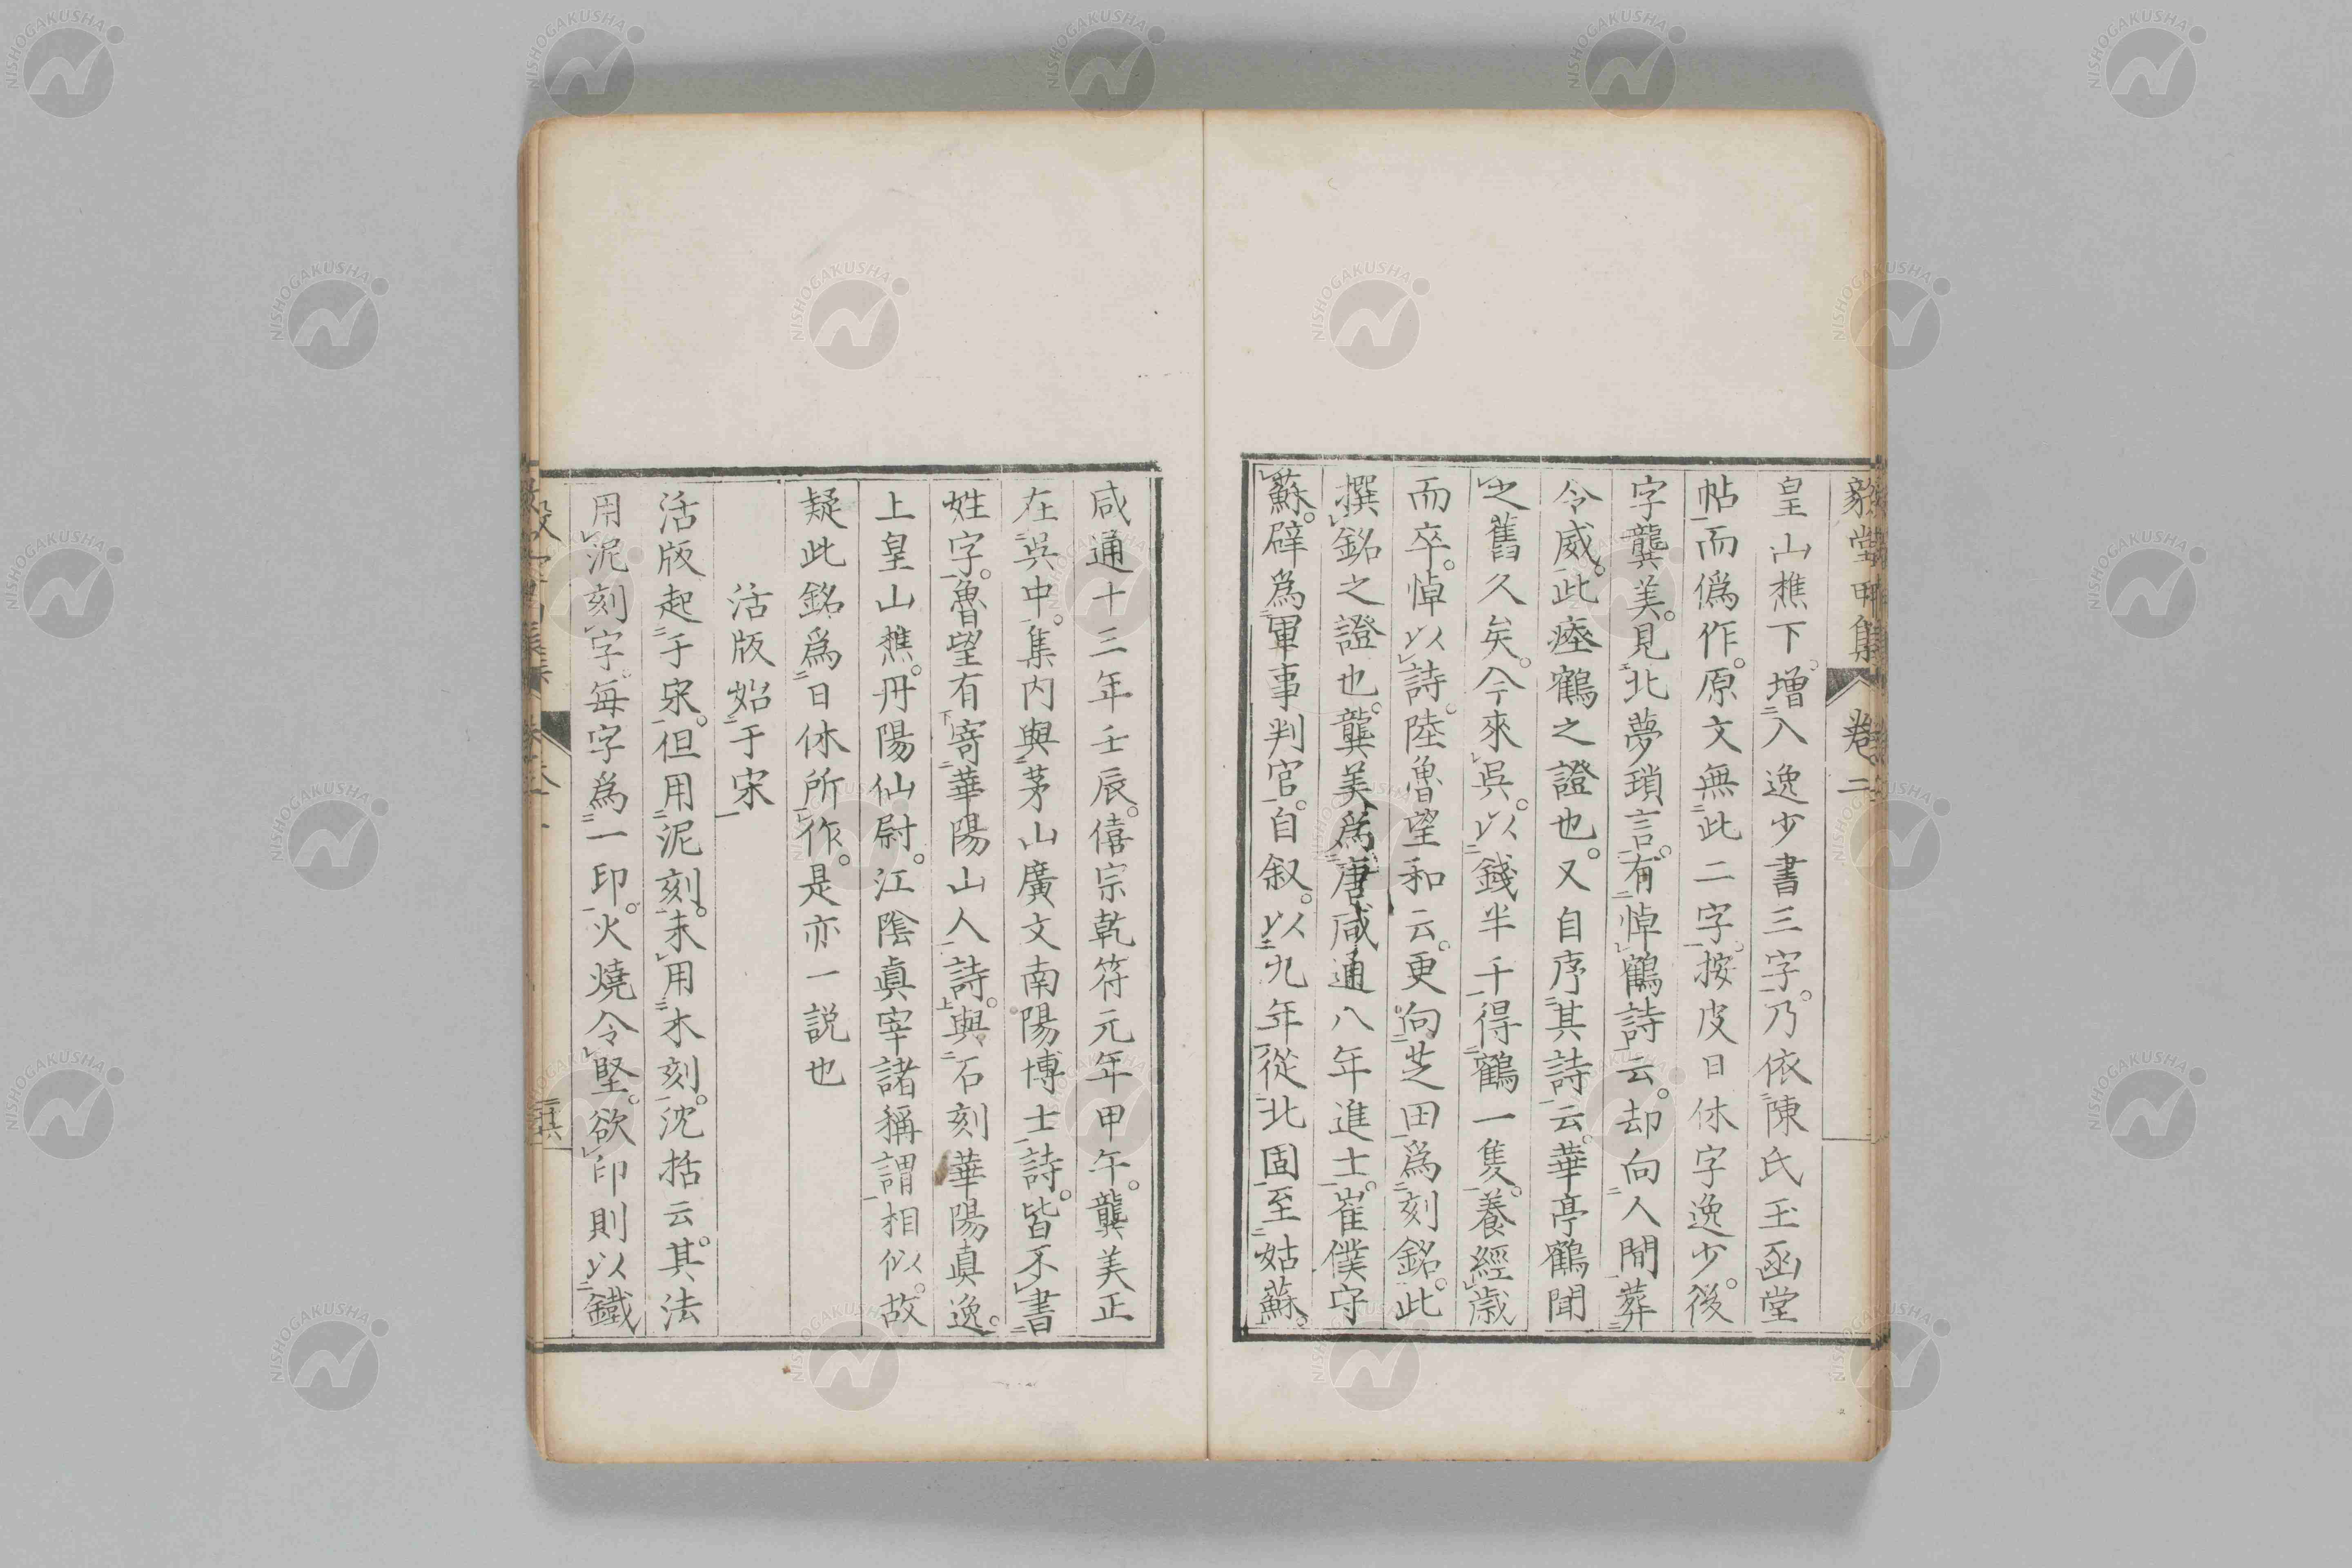 皇山樵下。増入逸少書三字。乃依陳氏玉函堂
帖而僞作。原文無此二字。按皮日休字逸少。後
字龔美。見北夢瑣言。有悼鶴詩云。却向人間葬
令威。此瘞鶴之證也。又自序其詩云。華亭鶴聞
之舊久矣。今來呉。以錢半千得鶴一隻。養經歳
而卒。悼以詩。陸魯望和云。更向芝田爲刻銘。此
撰銘之證也。龔美爲唐咸通八年進士。崔僕守
蘇。辟爲軍事判官。自叙。以九年從北固至姑蘇。
咸通十三年壬辰。僖宗乾符元年甲午。龔美正
在呉中。集内與茅山廣文南陽博士詩。皆不書
姓字。魯望有寄華陽山人詩。與石刻華陽眞逸。
上皇山樵。丹陽仙尉。江陰眞宰諸稱謂相似。故
疑此銘爲日休所作。是亦一説也
活版始于宋
活版起于宋。但用泥刻。未用木刻。沈括云。其法
用泥刻字。毎字爲一印。火燒令堅。欲印則以鐵
卷二
NISHOGAKUSHA